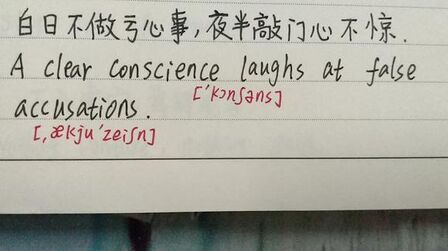 白日不做亏心事,夜半敲门心不惊.
A clear conscience laughs at false
['kɔnʃəns]
accusations.
[,ækju'zeiʃn]